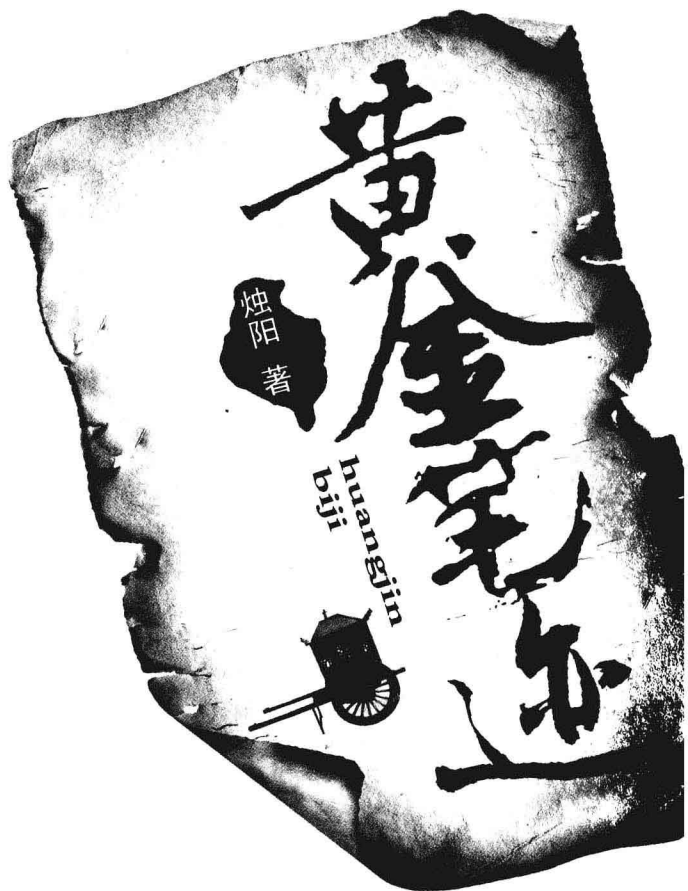 黄金笔迹
烛阳 著
huangjin
biji